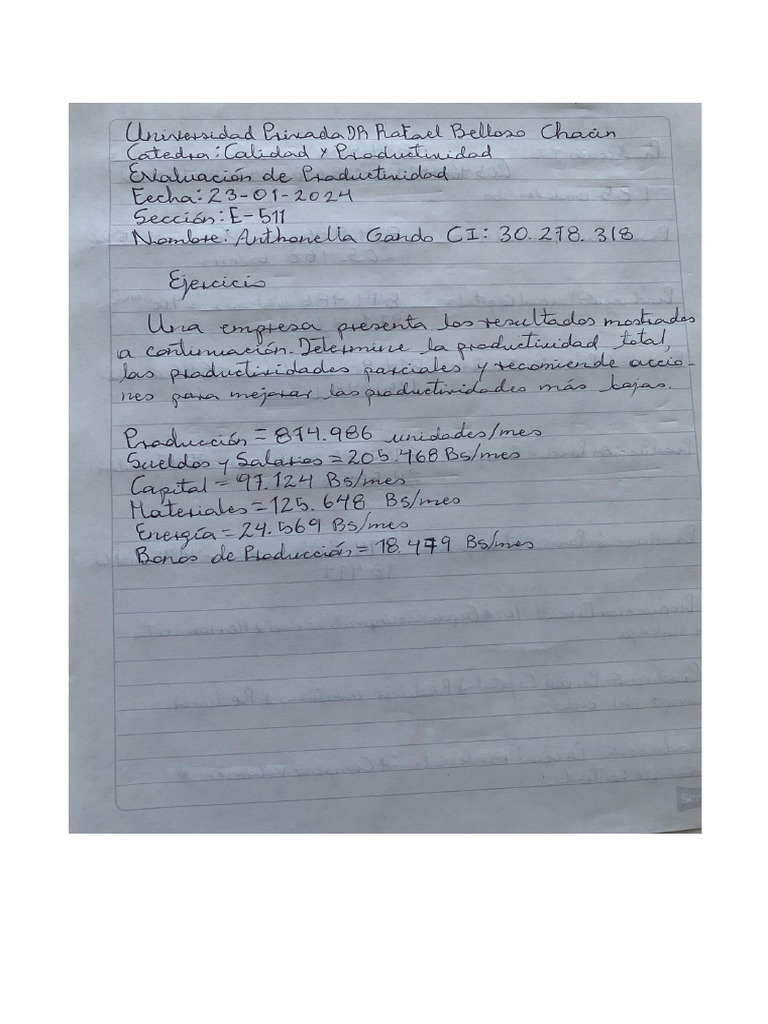 Universidad Privada DR Rafael Belloso Chacín
Catedra: Calidad y Productividad
Evaluación de Productividad
Fecha: 23-01-2024
Sección: E-511
Nombre: Anthonella Gando CI: 30.278.318
Ejercicio
Una empresa presenta los resultados mostrados
a continuación. Determine la productividad total,
las productividades parciales y recomiende accio-
nes para mejorar las productividades más bajas.
Producción = 874.986 unidades/mes
Sueldos y Salarios = 205.468 Bs/mes
Capital = 97.124 Bs/mes
Materiales = 125.648 Bs/mes
Energía = 24.569 Bs/mes
Bonos de Producción = 18.479 Bs/mes